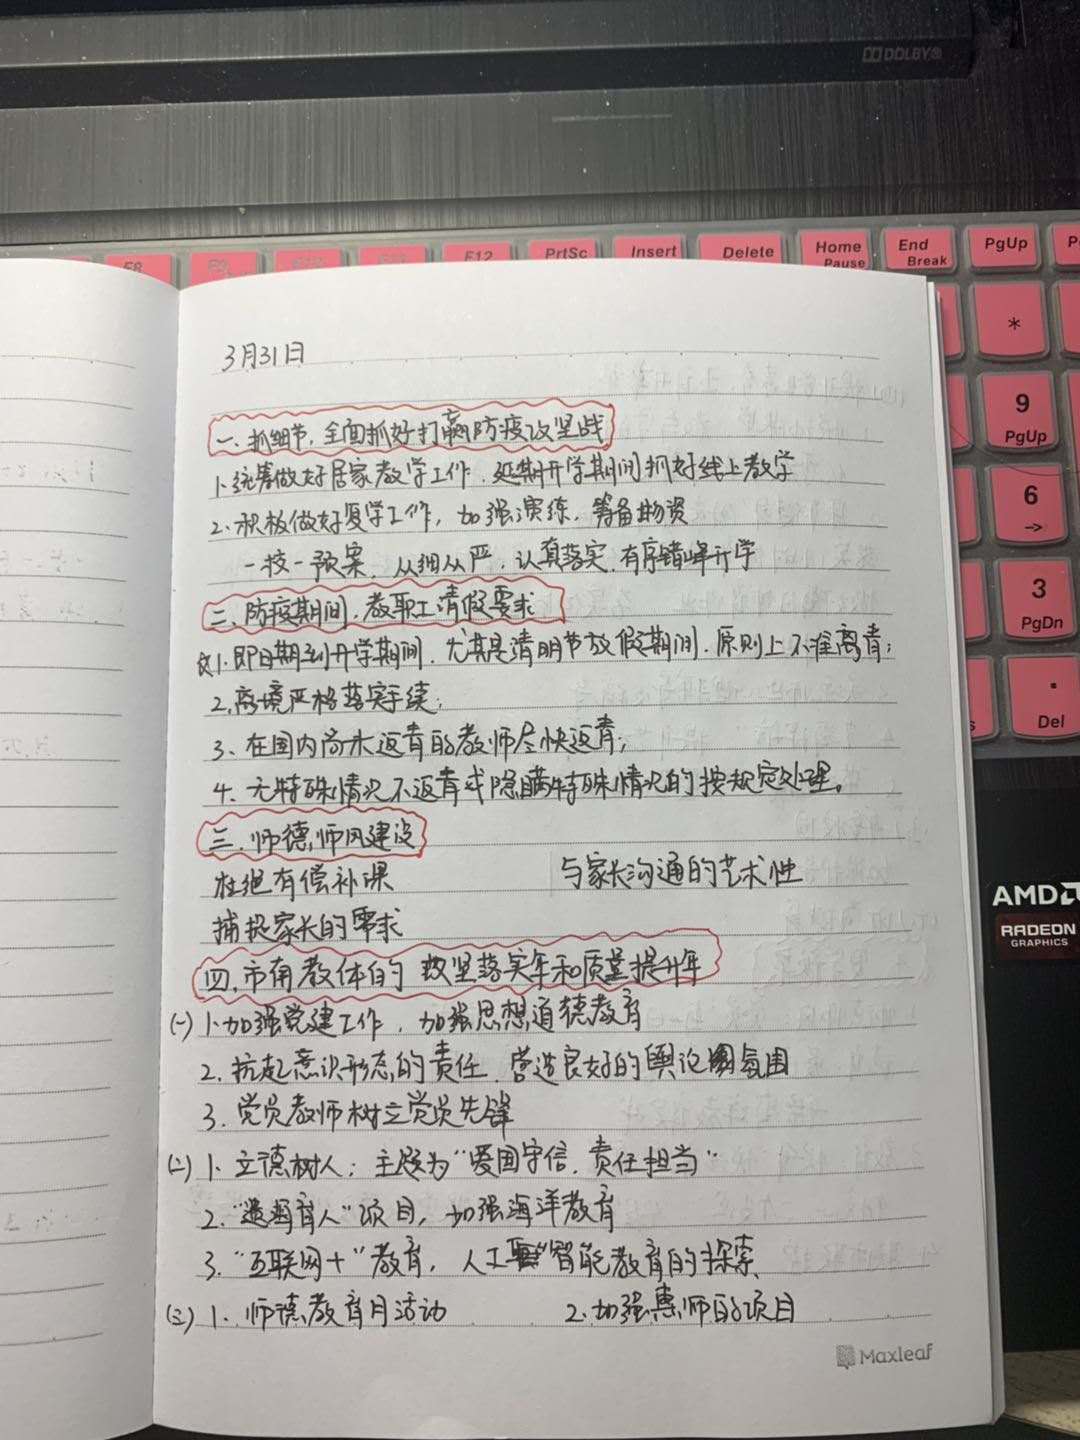 DOLBY®
F8
F9
F12
PrtSc
Insert
Delete
Home
Pause
End
Break
PgUp
*
9
PgUp
6
→
3
PgDn
.
Del
AMD
RADEON
GRAPHICS
3月31日
一、抓细节,全面抓好打赢防疫攻坚战
1、统筹做好居家教学工作,延期开学期间抓好线上教学
2、积极做好复学工作,加强演练,筹备物资
一校一预案,从细从严,认真落实,有序错峰开学
二、防疫期间,教职工请假要求
1、即日期到开学期间,尤其是清明节放假期间,原则上不准离青;
2、离境严格落实手续;
3、在国内尚未返青的教师尽快返青;
4、无特殊情况不返青或隐瞒特殊情况的按规定处理。
三、师德师风建设
杜绝有偿补课 与家长沟通的艺术性
捕捉家长的需求
四、市南教体的 攻坚落实年和质量提升年
(一) 1、加强党建工作,加强思想道德教育
2、抗起意识形态的责任,营造良好的舆论氛围
3、党员教师树立党员先锋
(二) 1、立德树人:主题为“爱国守信,责任担当”
2、“海育人”项目,加强海洋教育
3、“互联网+”教育,人工智能教育的探索
(三) 1、师德教育月活动 2、加强惠师的项目
Maxleaf